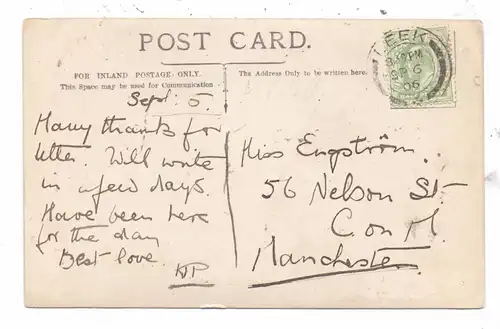 POST CARD.
FOR INLAND POSTAGE ONLY.
This Space may be used for Communication
The Address Only to be written here.
LEEK
SP 6
06
Sept. 5.
Many thanks for
letter. Will write
in a few days.
Have been here
for the day
Best love.
Miss Engström.
56 Nelson St.
C. on M.
Manchester